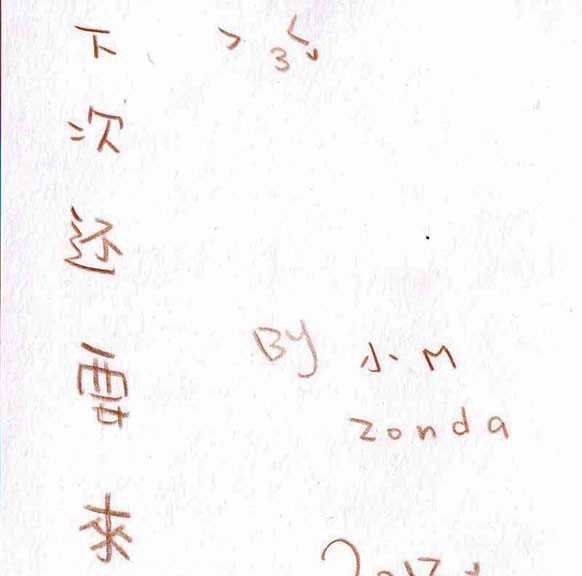 下次还要來
> 3 <
BY 小M
zonda